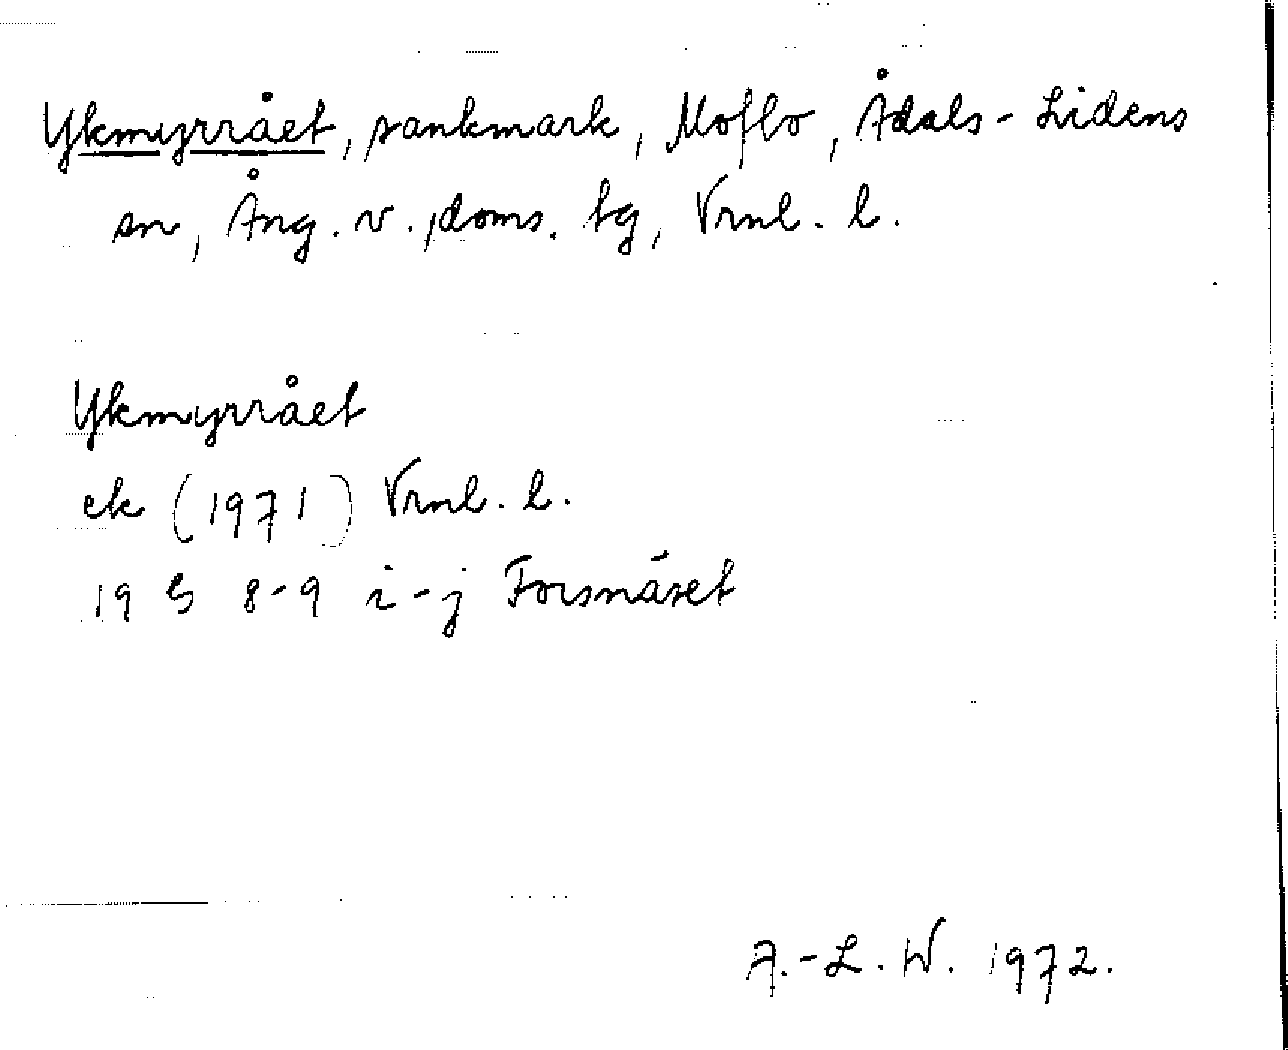 Ykmyrrået, sankmark, Moflo, Ådals-Lidens
sn, Ång. v. doms. tg, Vrnl. l.
Ykmyrrået
ek (1971) Vrnl. l.
19 G 8-9 i-j Forsnäset
A.-L. W. 1972.